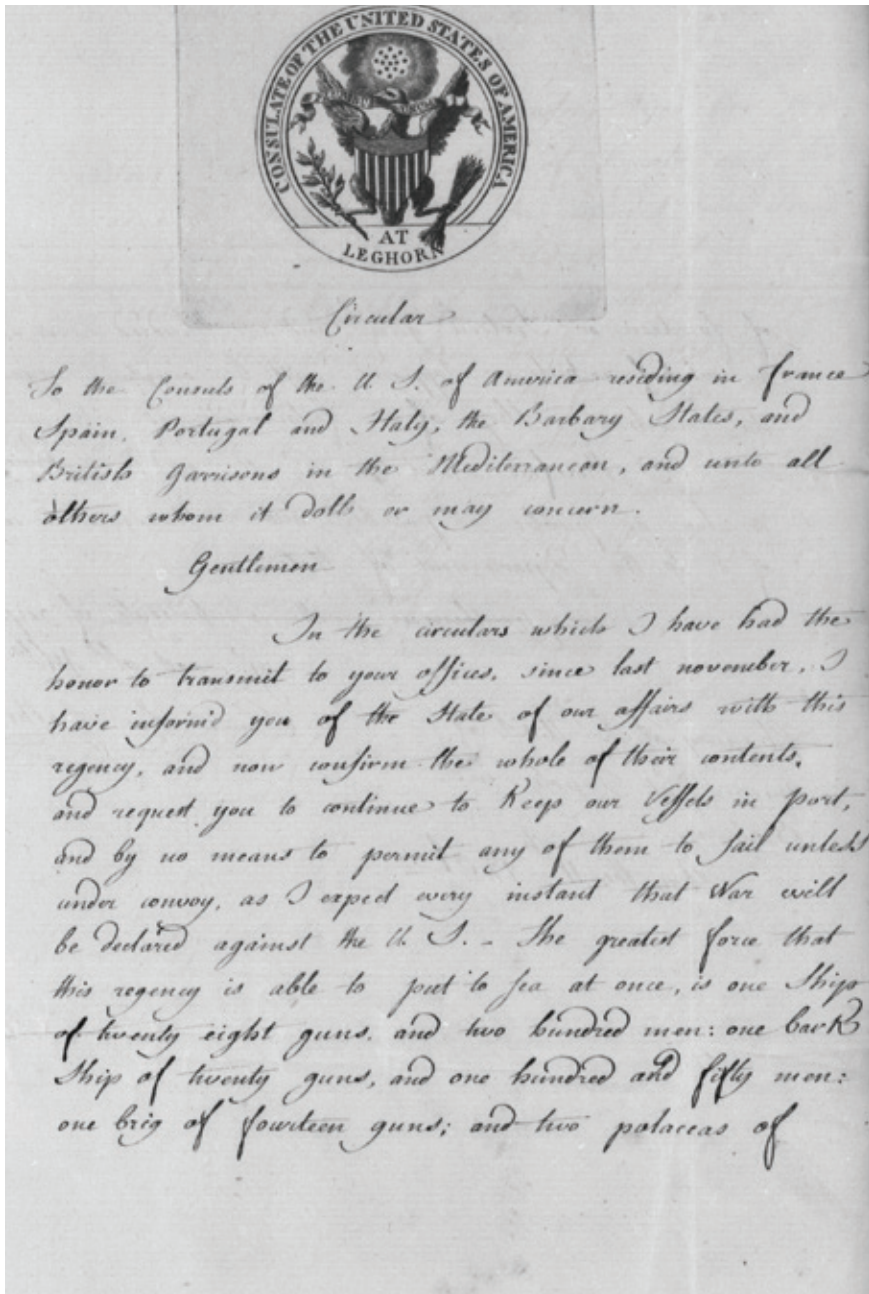 CONSULATE OF THE UNITED STATES OF AMERICA
AT
LEGHORN
Circular
To the Consuls of the U. S. of America residing in france
Spain, Portugal and Italy, the Barbary States, and
British Garrisons in the Mediterranean, and unto all
others whom it doth or may concern.
Gentlemen
In the circulars which I have had the
honor to transmit to your offices, since last november, I
have inform'd you of the State of our affairs with this
regency, and now confirm the whole of their contents,
and request you to continue to Keep our Vessels in port,
and by no means to permit any of them to sail unless
under convoy, as I expect every instant that War will
be declared against the U. S. - The greatest force that
this regency is able to put to sea at once, is one Ship
of twenty eight guns, and two hundred men: one bark
Ship of twenty guns, and one hundred and fifty men:
one brig of fourteen guns; and two polaccas of